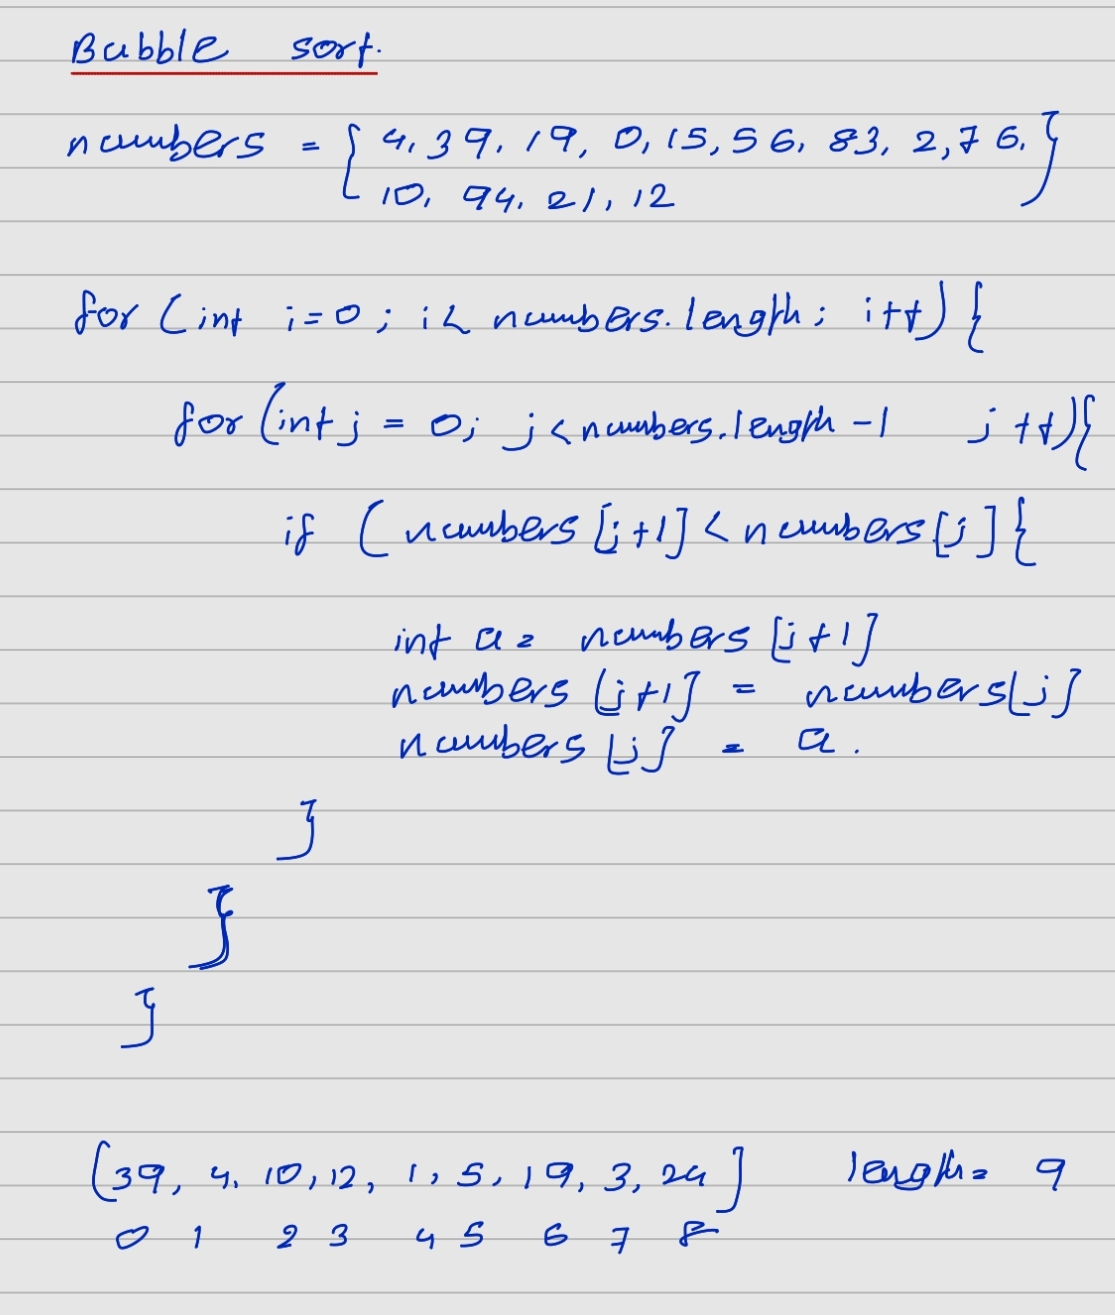 Bubble sort.
numbers = { 4, 39, 19, 0, 15, 56, 83, 2, 76,
10, 94, 21, 12 }
for (int i=0; i< numbers.length; i++) {
for (int j = 0; j < numbers.length -1 j ++){
if ( numbers [j+1] < numbers [j] {
int a = numbers [j+1]
numbers [j+1] = numbers[j]
numbers [j] = a.
}
}
}
[39, 4, 10, 12, 1, 5, 19, 3, 24] length = 9
0 1 2 3 4 5 6 7 8